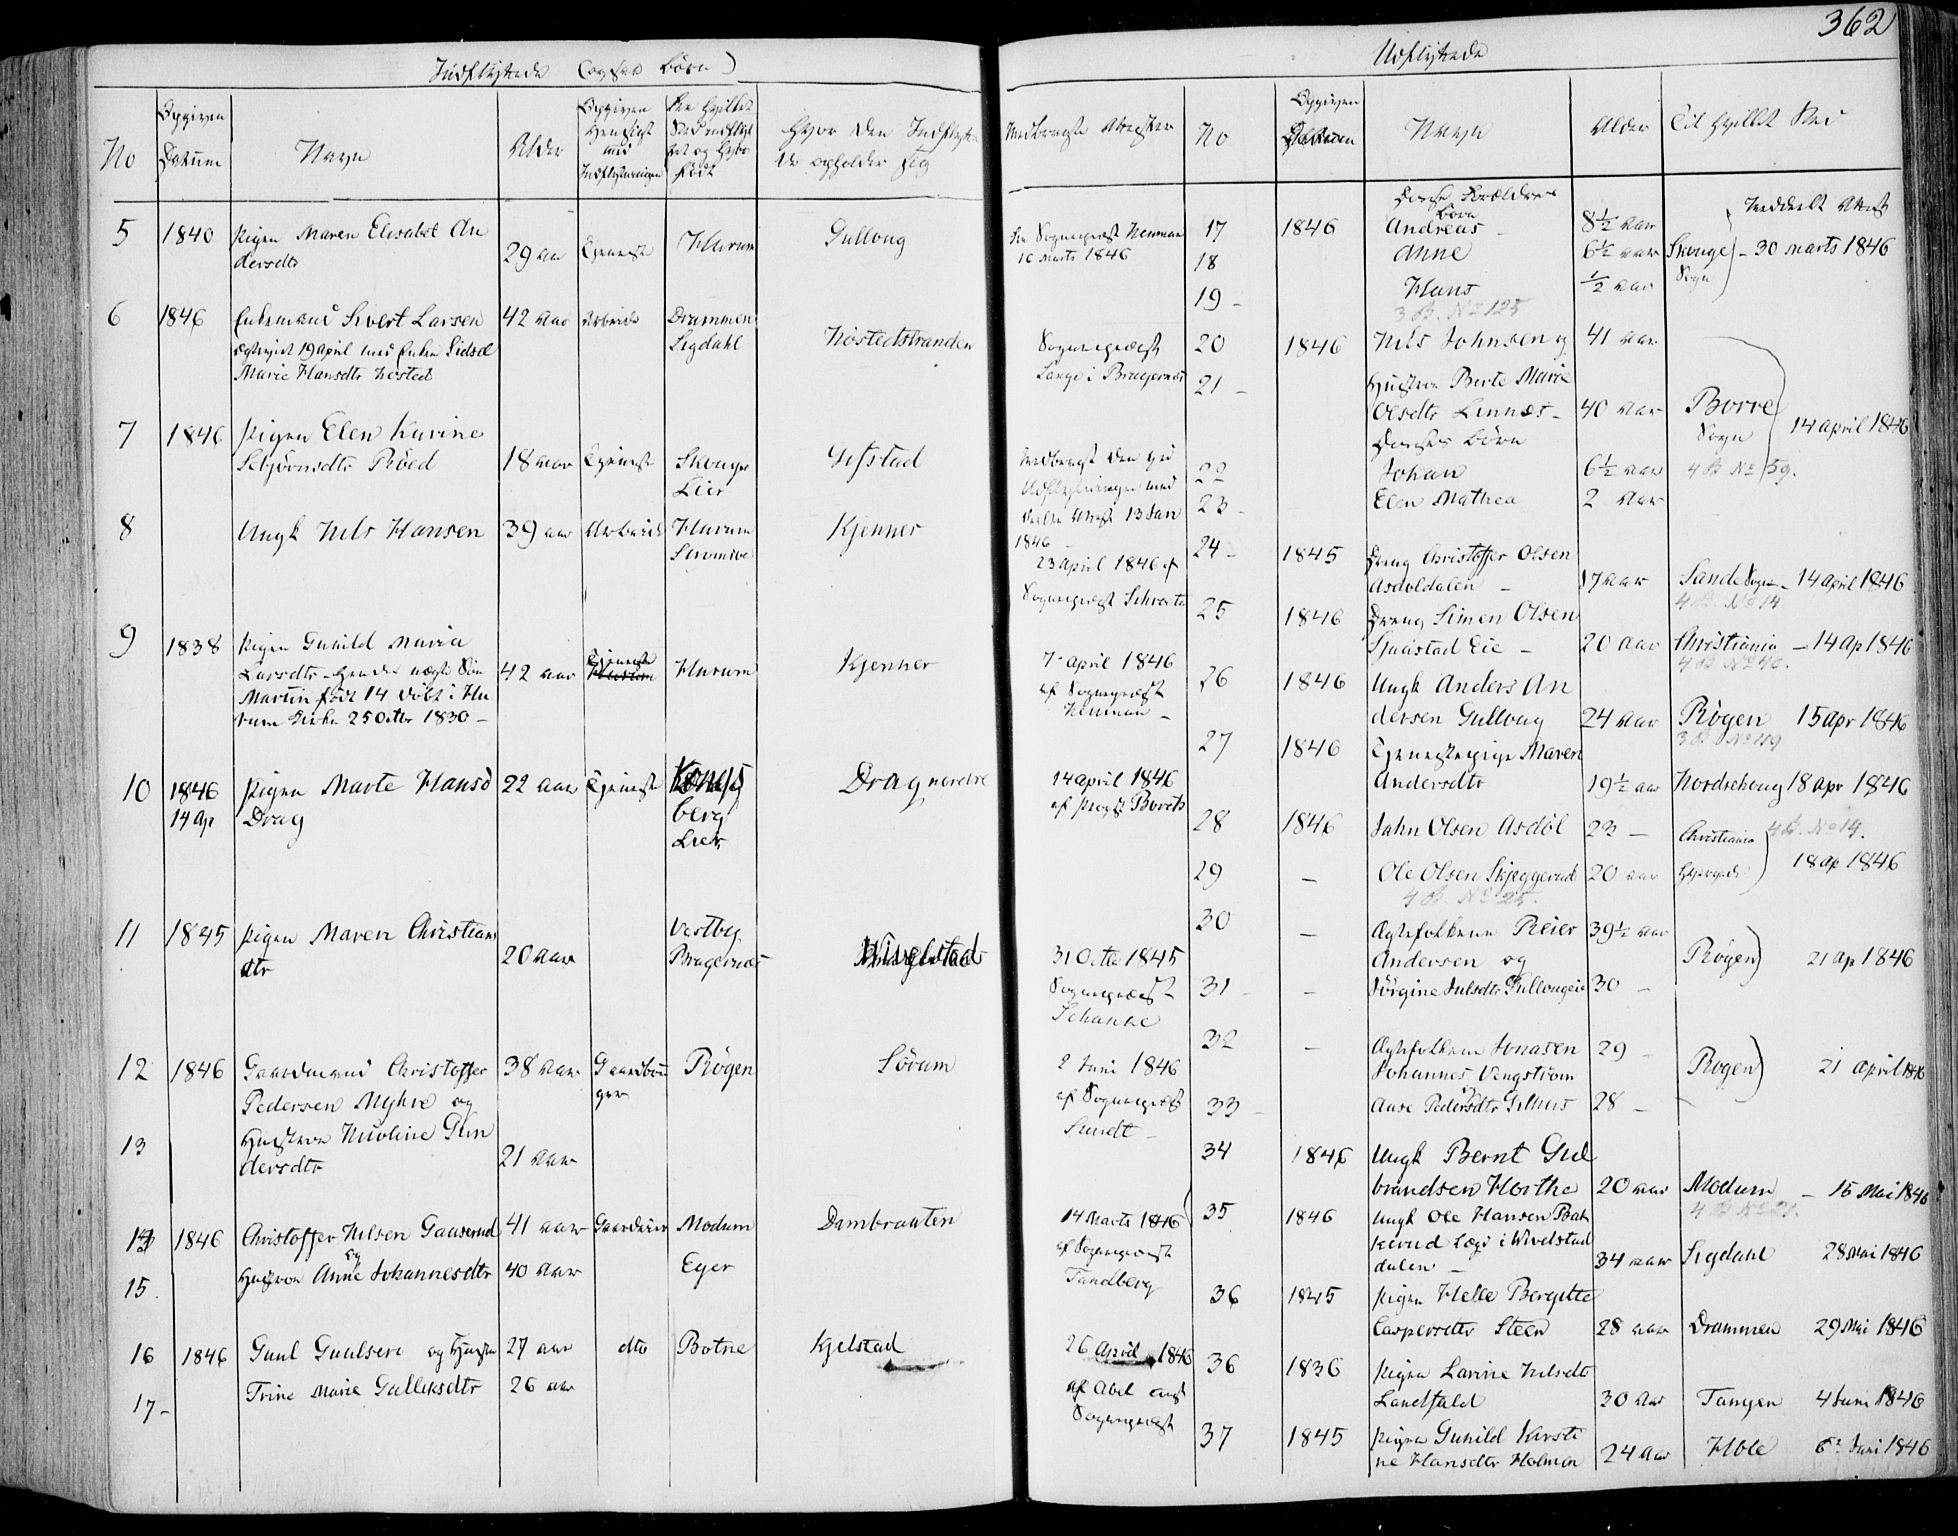 362
Indflyttede (ogsaa Børn)
No
Opgiven Datum
Navn
Alder
Opgiven Hensigt med Indflytningen
Fra hvilket Sted indflyttet og hvor født
Hvor den Indflyttede opholder sig
Medbragte Attester
5 1840 Pigen Maren Elisabet An 29 aar Tjeneste Hurum Gulloug Fra Sogneprest Neuman
dersdtr 16 Marts 1846
6 1846 Enkemand Sivert Larsen 42 aar Arbeide Drammen Næstedstranden Sogneprest
ægteviet 19 April med Enken Sidsel Sigdahl Lange i Bragernæs
Marie Hansdtr Næsted
7 1846 Pigen Elen Karine 18 aar Tjeneste Skouger Gifstad Medbragt den ved
Schjörnsdtr Röed Lier Udflytningen med
deelte Attest 13 Jan
1846
8 Ungk Nils Hansen 39 aar Arbeide Hurum Kjenner 23 April 1846 af
Strømsøe Sogneprest Schwartz
9 1838 Pigen Gunild Maria 42 aar Tjeneste Hurum Kjenner 7 April 1846
Larsdtr - Hendes uægte Søn af Sogneprest
Martin født 14 døbt i Hu Neuman
rum Kirke 25 Octbr 1830 -
10 1846 Pigen Marte Hansd 22 aar Tjeneste Kongs Drag nordre 14 April 1846
14 Ap Drag berg af Prost
Lier
11 1845 Pigen Maren Christians 20 aar Vestby Wivelstad 31 Octbr 1845
dtr Bragernæs Sogneprest
Schanke
12 1846 Gaardmand Christoffer 38 aar Gaardbru Røgen Sørum 2 Juni 1846
Pedersen Myhre og ger af Sogneprest
13 Hustroe Nicoline Gun 21 aar Sundt
dersdtr
14 1846 Christoffer Nilsen Gauserud 41 aar Gaardeier Modum Dambraaten 14 Marts 1846
og af Sogneprest
15 Hustroe Anne Johannesdtr 40 aar Eger Tandberg
16 1846 Guul Guulsen og Hustru 27 aar dto Botne Kjelstad 26 April 1846
17 Trine Marie Gulliksdtr 26 aar af Abel
Sogneprest
Udflyttede
No
Opgiven
Navn
Alder
Til hvilket Sted
Disse Forældres Meddeelt Attest
Børn
17 1846 Andreas 8½ aar
18 Anne 6½ aar Skouger Sogn - 30 Marts 1846
19 - Hans ½ aar
3 B. No 125
20 1846 Nils Johnsen og 41 aar
21 - Hustroe Berte Marie
Olsdtr Linnæs - 40 aar Borre Sogn 14 April 1846
Deres Børn 4 B No 59.
22 Johan 6½ aar
23 - Elen Mathea 2 aar
24 - 1845 Dreng Christoffer Olsen
Asdoldalen - 17 aar Sande Sogn - 14 April 1846
4 B. No 14
25 1846 Dreng Simen Olsen
Sjaastad Eie - 20 aar Christiania - 14 Ap 1846
4 B No 40.
26 1846 Ungk Anders An
dersen Gulloug 24 aar Røgen 15 Apr 1846
3 B No 119
27 1846 Tjenestepige Maren
Andersdtr 19½ aar Nordrehoug 18 Apr 1846
28 1846 Jahn Olsen Asdöl 23 - Christiania 4 B. No 14.
29 - Ole Olsen Skjeggerud 20 aar 18 Ap 1846
4 B. No 25.
30 - Ægtefolkene Reier 39½ aar
Andersen og Røgen 21 Ap 1846
31 - - Jörgine Julsdtr Gullougeie 30 -
32 - Ægtefolkene Jonasen 29 -
Johannes Vengstrøm Rogen 21 April 1846
33 - Aase Pedersdtr Gilhus 28 -
34 1846 Ungk Bernt Gul
brandsen Horthe 20 aar Modum - 15 Mai 1846
4 B No 21.
35 1846 Ungk Ole Hansen Bak
kerud Lægd i Wivelstad
dalen - 34 aar Sigdahl 28 Mai 1846
36 1845 Pigen Helle Bergitte
Caspersdtr Steen 28 aar Drammen 29 Mai 1846
36 1836 Pigen Lavine Nilsdtr
Landfald 30 aar Tangen 4 Juni 1846
37 1845 Pigen Gunild Kirsti
ne Hansdtr Holmen 24 aar Hole 6 Juni 1846